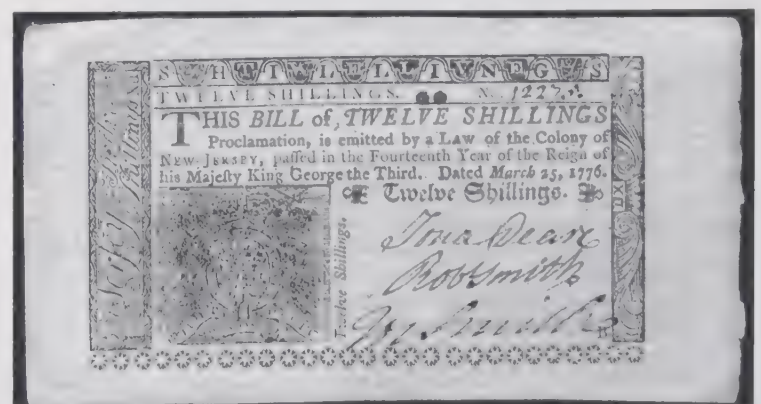 TWELVE SHILLINGS. No.
THIS BILL of TWELVE SHILLINGS
Proclamation, is emitted by a Law of the Colony of
NEW-JERSEY, paſſed in the Fourteenth Year of the Reign of
his Majeſty King George the Third. Dated March 25, 1776.
Twelve Shillings.
Twelve Shillings.
Jona Deare
Rob Smith
Smith
XII